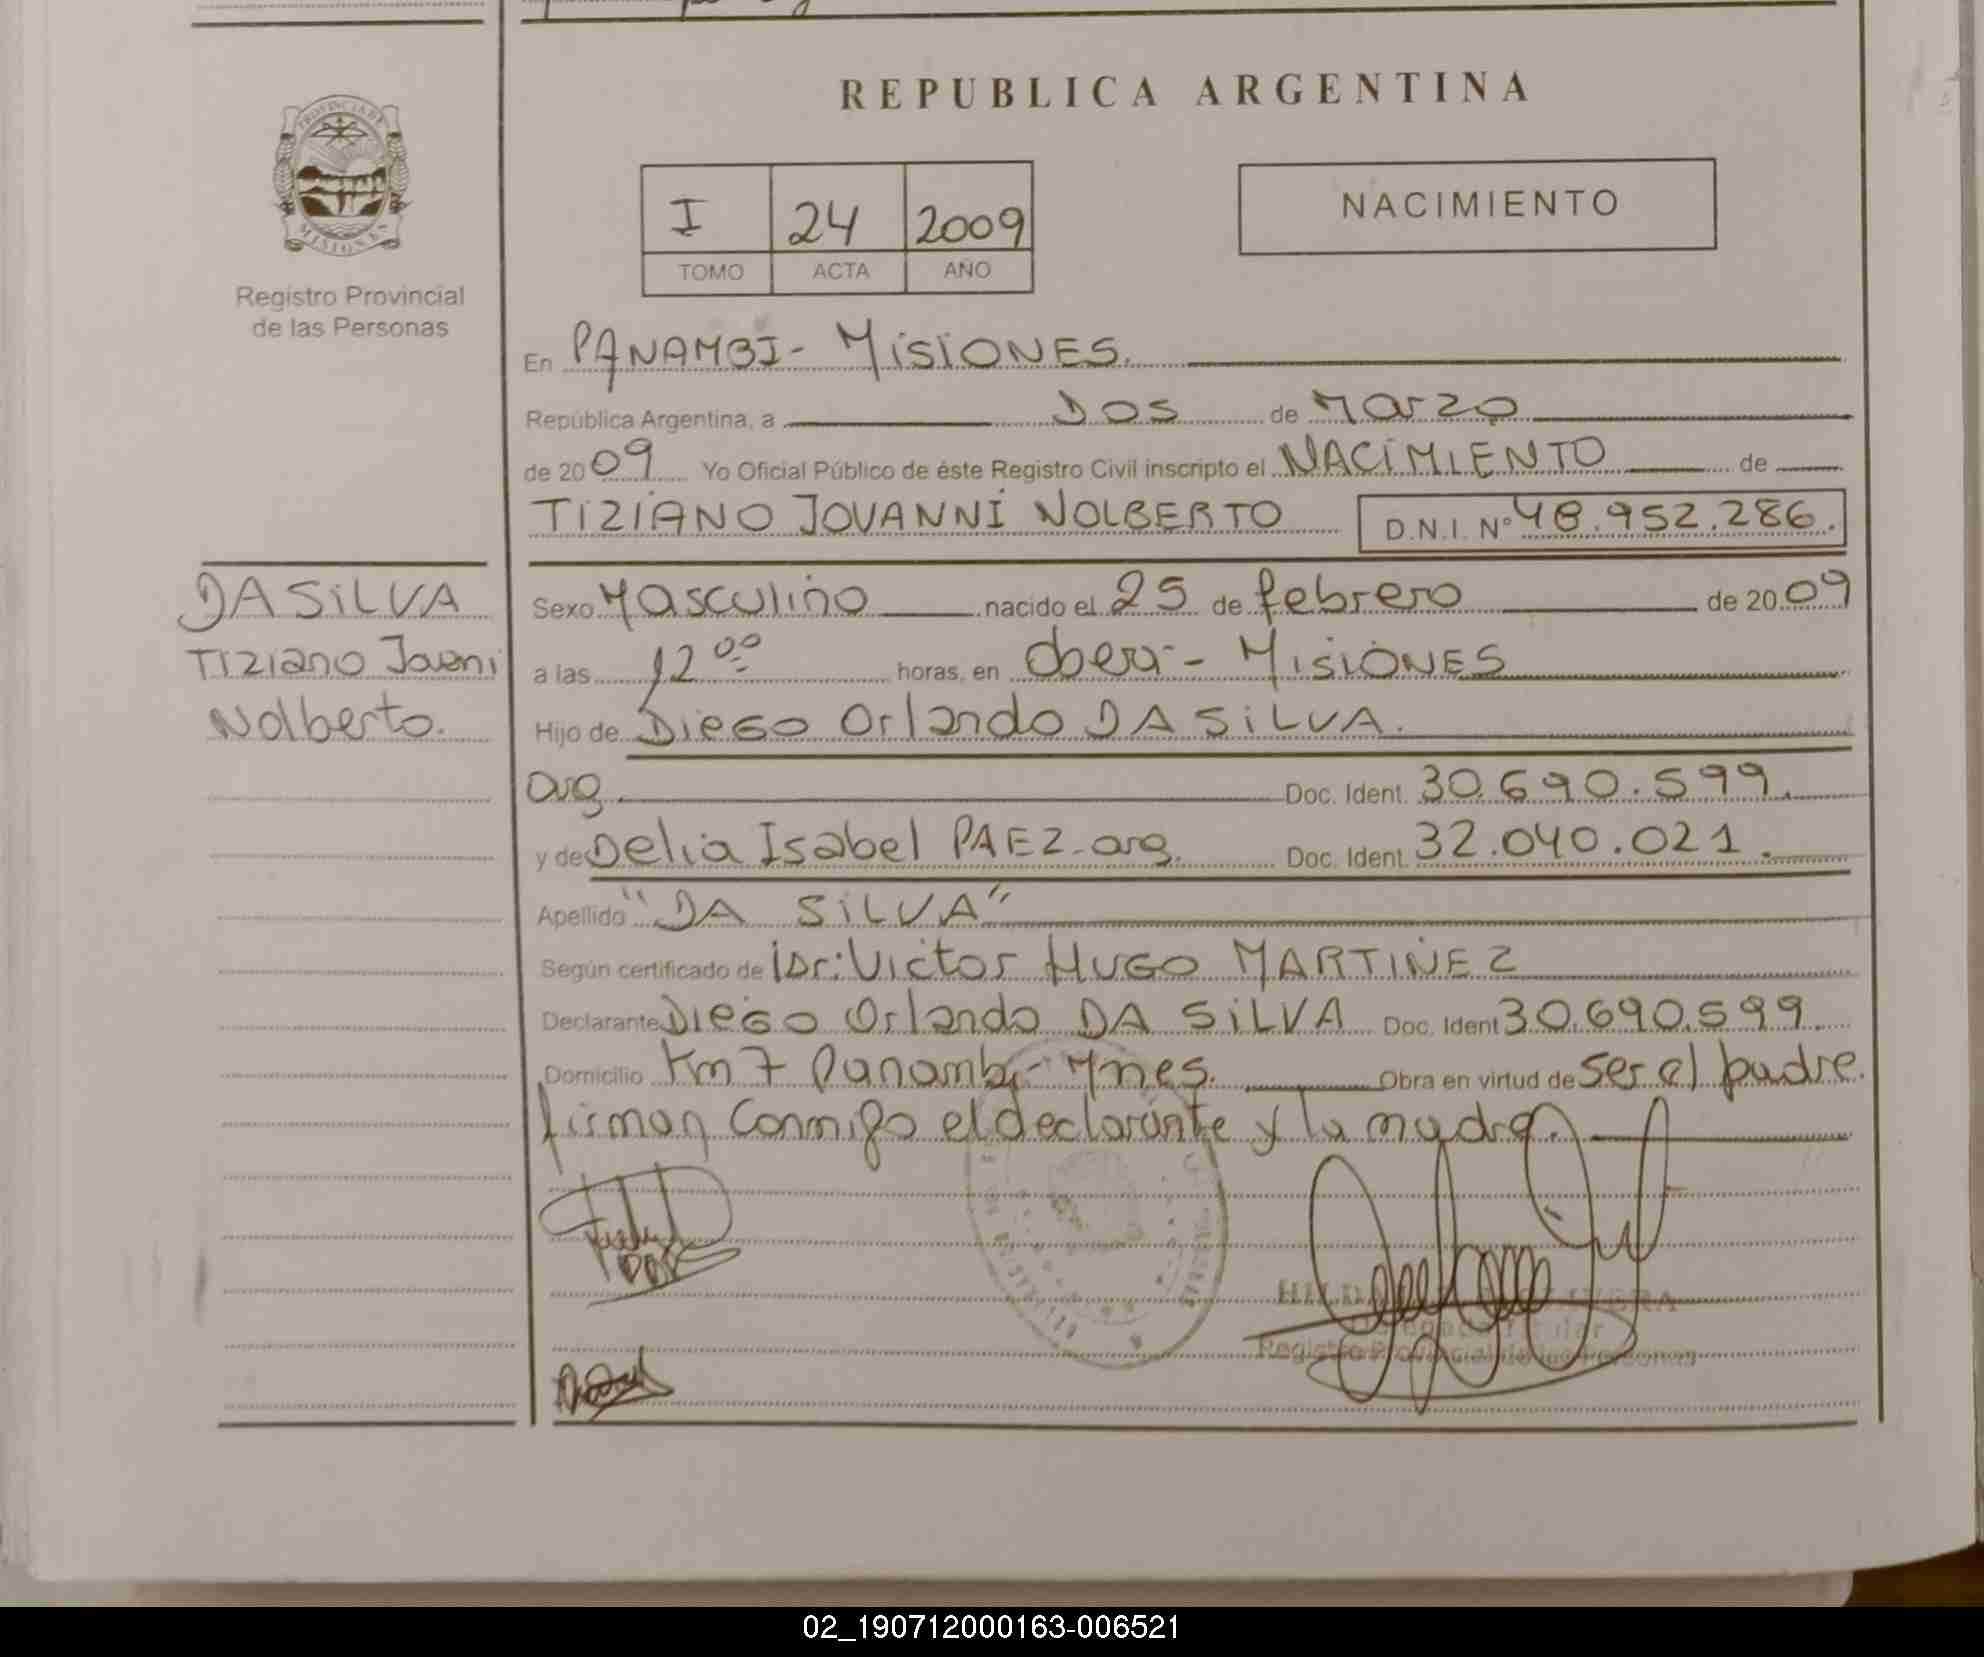 REPUBLICA ARGENTINA
PROVINCIA DE
MISIONES
Registro Provincial
de las Personas
I 24 2009
TOMO ACTA AÑO
NACIMIENTO
En PANAMBI - MISIONES.
República Argentina, a DOS de Marzo
de 2009 Yo Oficial Público de éste Registro Civil inscripto el NACIMIENTO de
TIZIANO JOVANNI NOLBERTO D.N.I. Nº 48.952.286.
DA SILVA
Tiziano Jovani
Nolberto.
Sexo Masculino nacido el 25 de febrero de 2009
a las 12 00 horas, en Oberá - MISIONES
Hijo de Diego Orlando DA SILVA.
arg Doc. Ident. 30.690.599.
y de Delia Isabel PAEZ - arg. Doc. Ident. 32.040.021.
Apellido "DA SILVA"
Según certificado de Dr: Victor HUGO MARTINEZ
Declarante Diego Orlando DA SILVA Doc. Ident 30.690.599.
Domicilio Km 7 Panambi - Mnes. Obra en virtud de ser el padre.
firman conmigo el declarante y la madre.
HILDA
Delegada Titular
Registro Provincial de las Personas
02_190712000163-006521